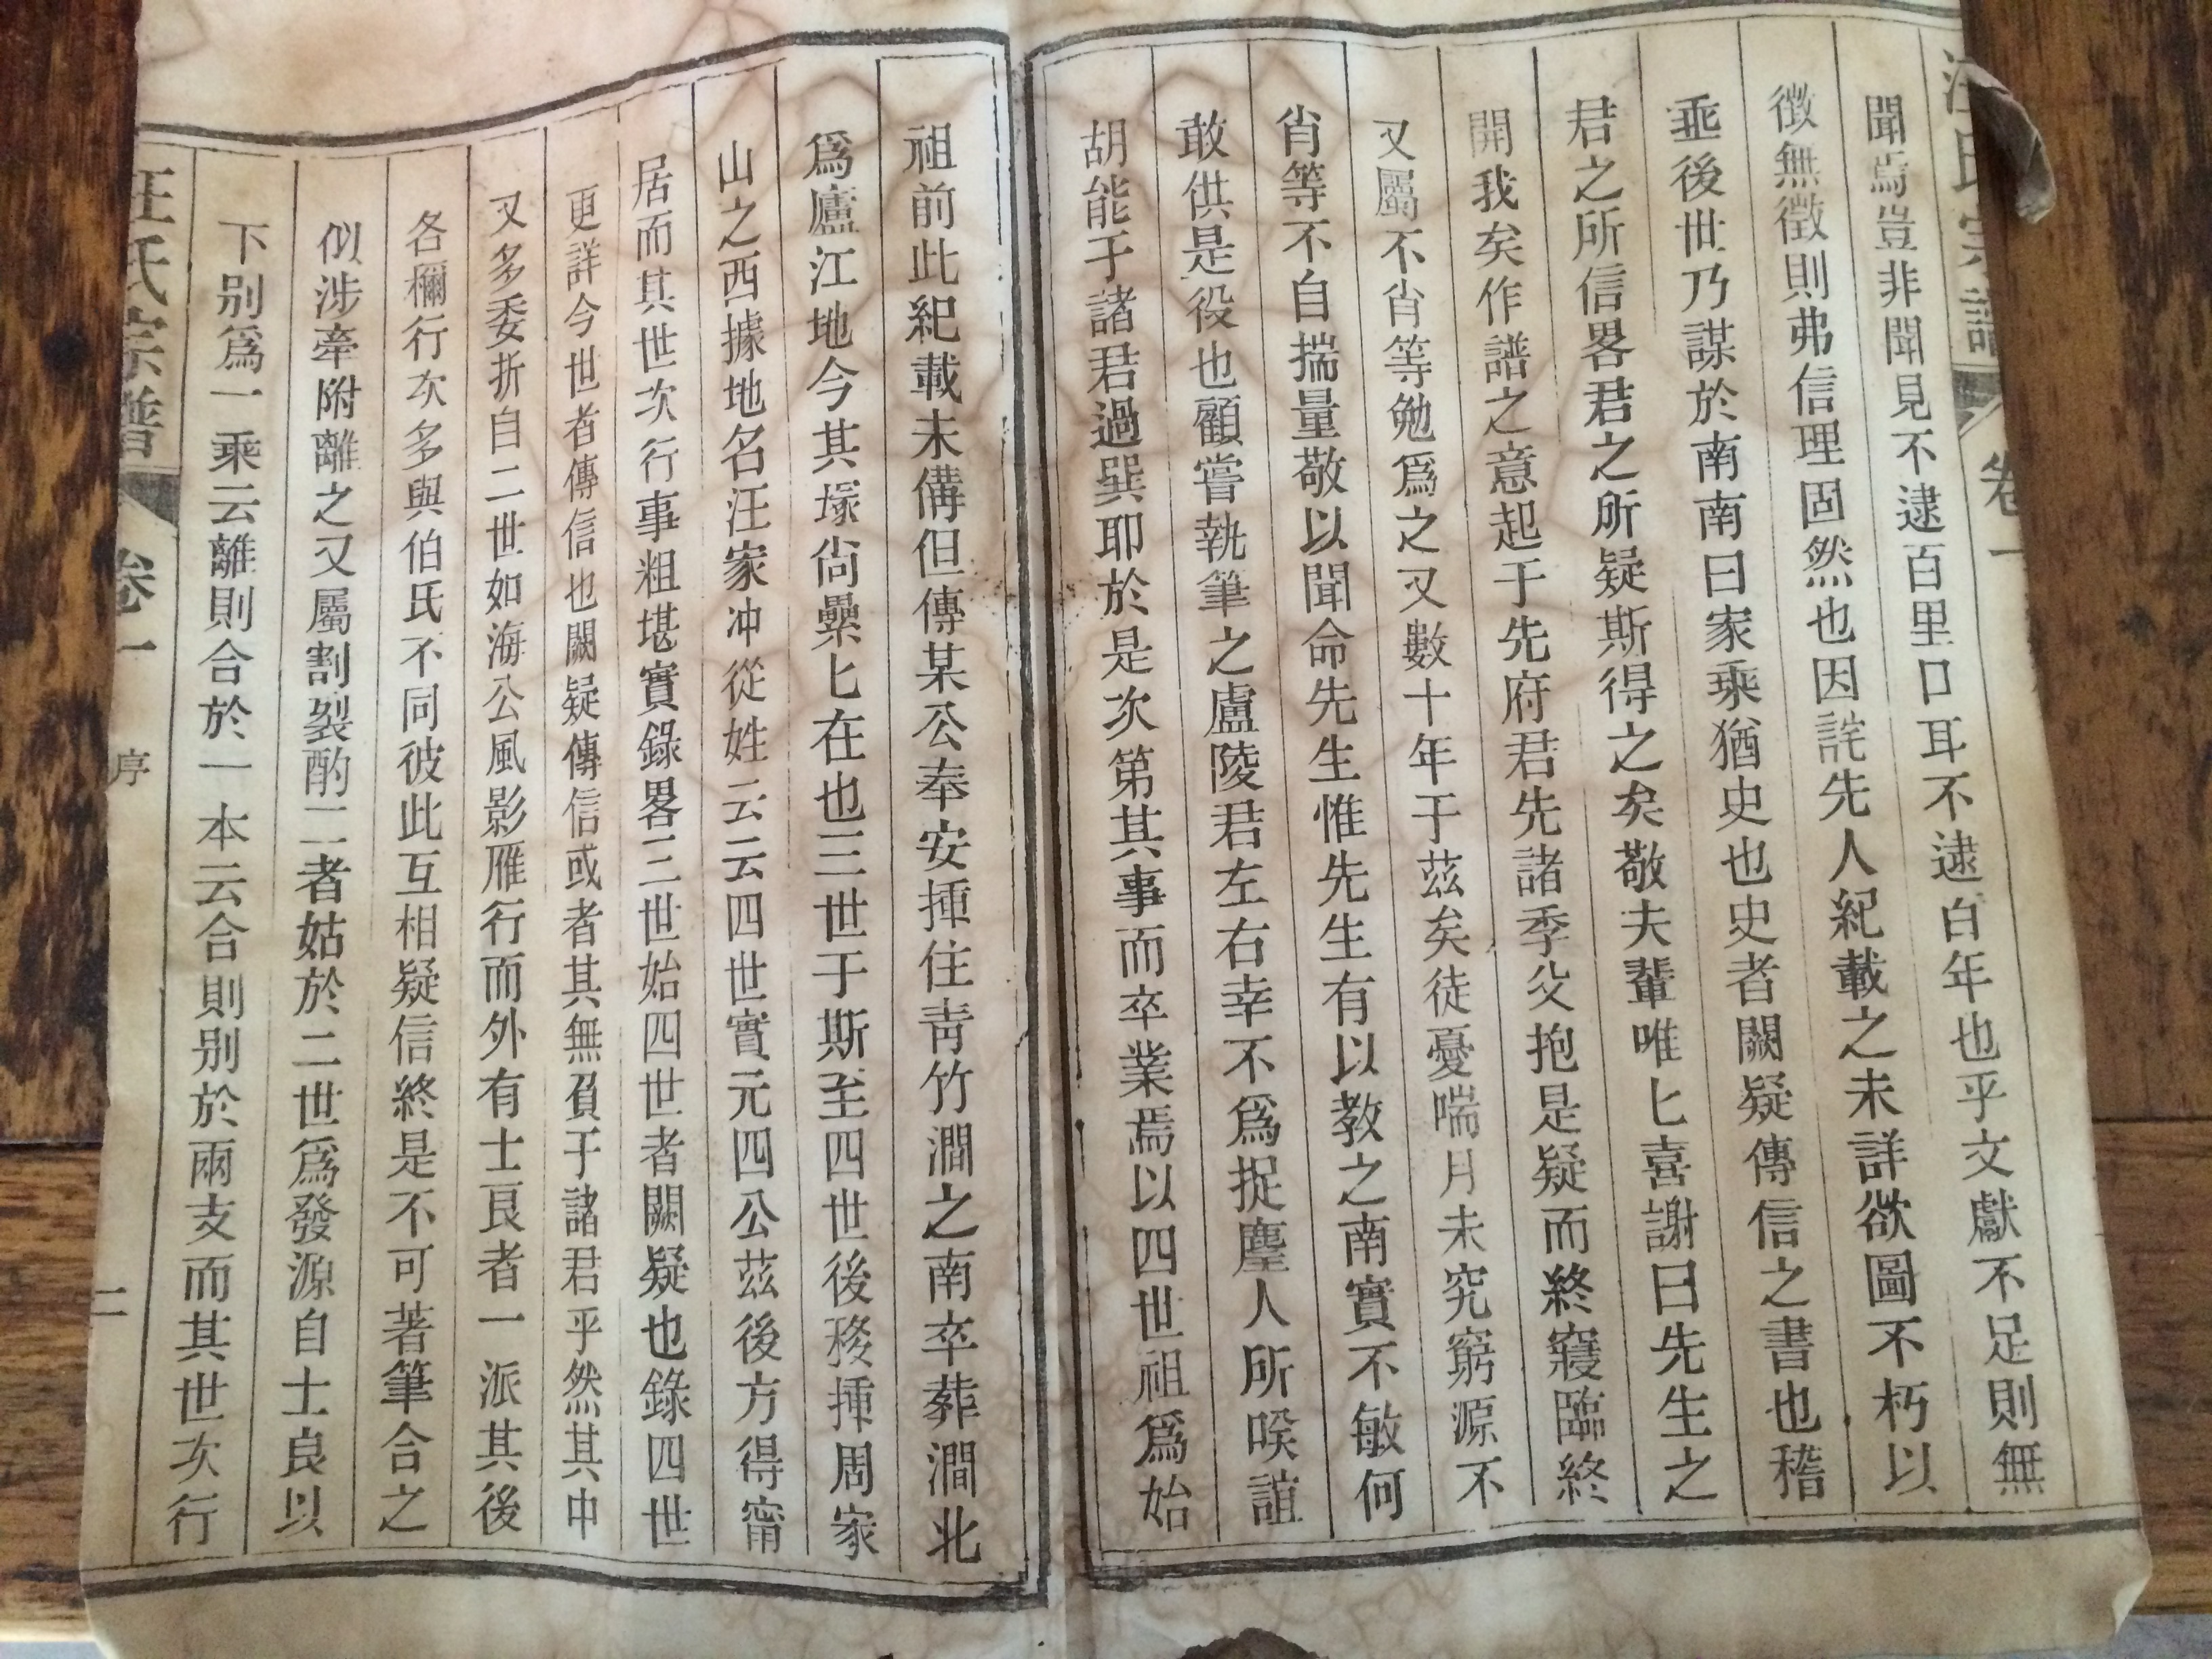 汪氏宗譜 卷一
聞焉豈非聞見不逮百里口耳不逮百年也乎文獻不足則無
徵無徵則弗信理固然也因詫先人紀載之未詳欲圖不朽以
垂後世乃謀於南南曰家乘猶史也史者闕疑傳信之書也稽
君之所信畧君之所疑斯得之矣敬夫輩唯匕喜謝曰先生之
開我矣作譜之意起于先府君先諸季父抱是疑而終寢臨終
又屬不肖等勉爲之又數十年于茲矣徒憂喘月未究窮源不
肖等不自揣量敬以聞命先生惟先生有以教之南實不敏何
敢供是役也顧嘗執筆之盧陵君左右幸不爲捉麈人所唉誼
胡能于諸君過巽耶於是次第其事而卒業焉以四世祖爲始
祖前此紀載未備但傳某公奉安揷住靑竹澗之南卒葬澗北
爲廬江地今其塚尙纍匕在也三世于斯至四世後移揷周家
山之西據地名汪家冲從姓云云四世實元四公茲後方得甯
居而其世次行事粗堪實錄畧三世始四世者闕疑也錄四世
更詳今世者傳信也闕疑傳信或者其無負于諸君乎然其中
又多委折自二世如海公風影雁行而外有士良者一派其後
各禰行次多與伯氏不同彼此互相疑信終是不可著筆合之
似涉牽附離之又屬割裂酌二者姑於二世爲發源自士良以
下别爲一乘云離則合於一本云合則别於兩支而其世次行
汪氏宗譜 卷一 序 二